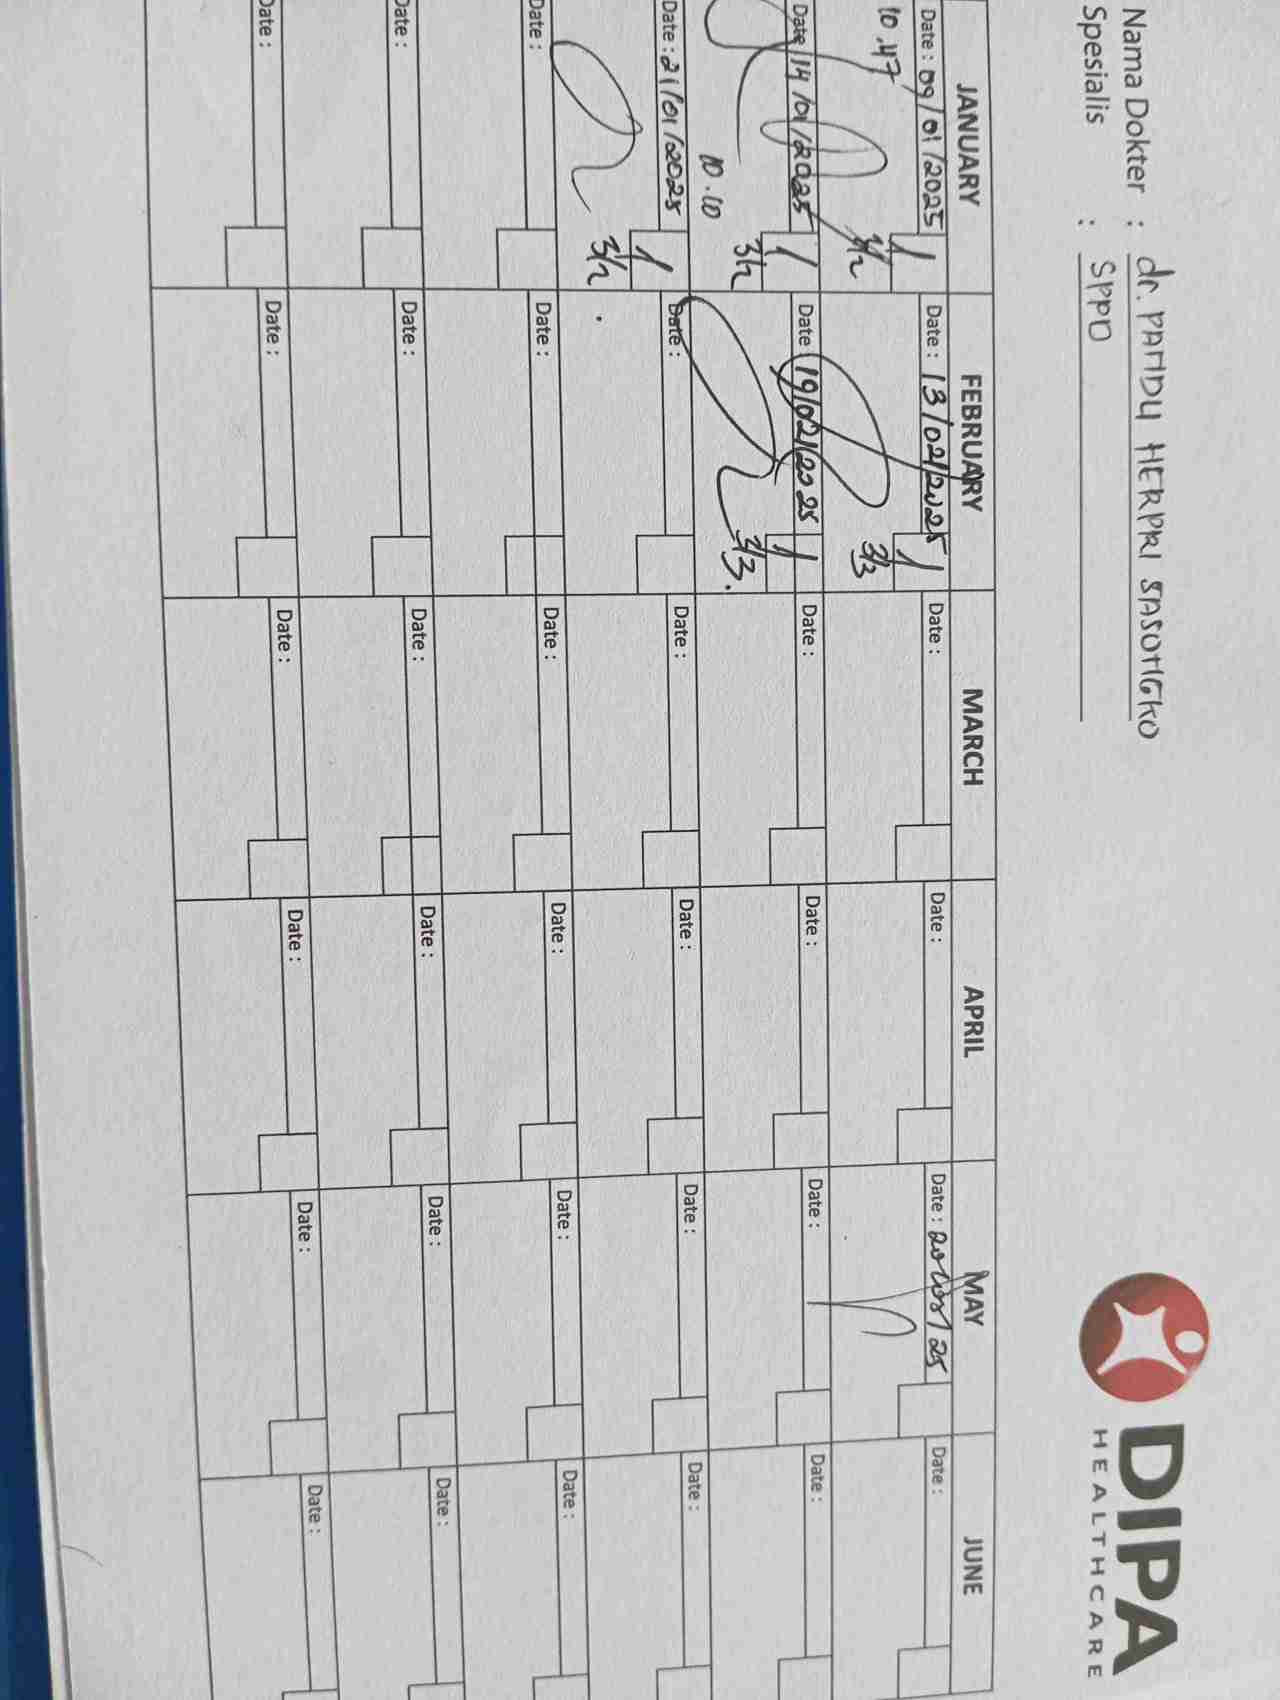 Nama Dokter : dr. PANDU HERPRI SASONGKO
Spesialis : SPPD
DIPA
HEALTHCARE
JANUARY FEBRUARY MARCH APRIL MAY JUNE
Date : 09/01/2025 1 Date : 13/02/2025 1 Date : Date : Date : 20/05/25 Date :
10.47 3/2 3/3
Date : 14/01/2025 1 Date : 19/02/2025 1 Date : Date : Date : Date :
10.10 3/2 3/3.
Date : 21/01/2025 1 Date : Date : Date : Date : Date :
3/2
Date : Date : Date : Date : Date : Date :
Date : Date : Date : Date : Date : Date :
Date : Date : Date : Date : Date : Date :